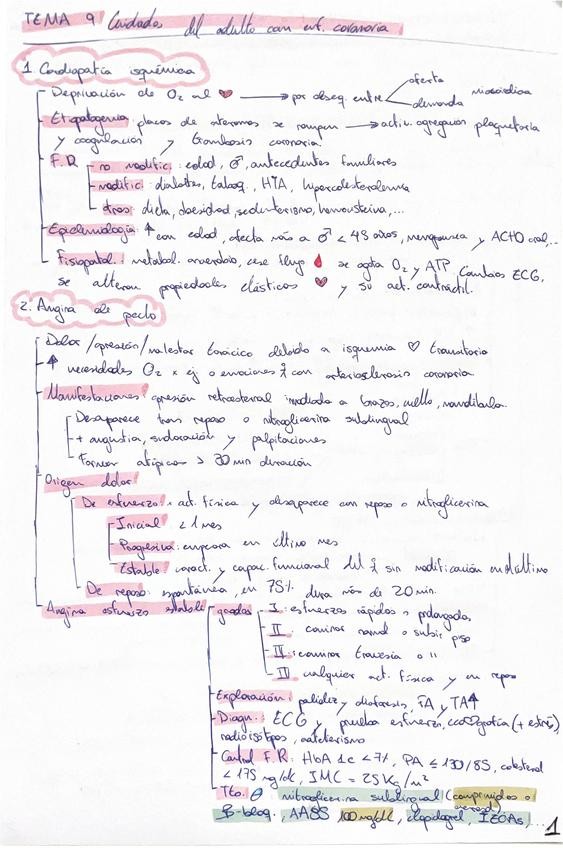 TEMA 9 Cuidados del adulto con enf. coronaria
1 Cardiopatía isquémica
Deprivación de O2 al ❤ → por deseq. entre oferta demanda miocárdica
Etiopatogenia: placas de ateromas se rompen → activ. agregación plaquetaria
y coagulación y trombosis coronaria.
F.R no modific: edad, ♂, antecedentes familiares
modific: diabetes, tabaq., HTA, hipercolesterolemia
otros: dieta, obesidad, sedentarismo, homocisteína,...
Epidemiología: ↑ con edad, afecta más a ♂ < 45 años, menopausia y ACHO oral...
Fisiopatol.: metabol. anaerobio, cese flujo 🩸 se agota O2 y ATP. Cambios ECG,
se alteran propiedades elásticas ❤ y su act. contráctil.
2. Angina de pecho
Dolor/opresión/malestar torácico debido a isquemia ♡ transitoria
↑ necesidades O2 x ej o emociones con arteriosclerosis coronaria
Manifestaciones: opresión retroesternal irradiada a brazos, cuello, mandíbula.
Desaparece tras reposo o nitroglicerina sublingual
+ angustia, sudoración y palpitaciones
Formas atípicas > 30 min duración
Origen dolor:
De esfuerzo: act. física y desaparece con reposo o nitroglicerina
Inicial < 1 mes
Progresiva: empeora en último mes
Estable: caract. y capac. funcional del sin modificación en el último
De reposo: espontánea, en 75% dura más de 20 min.
Angina esfuerzo estable grados I: esfuerzos rápidos o prolongados
II: caminar normal o subir piso
III: caminar travesía o "
IV cualquier act. física y en reposo
Exploración: palidez y diaforesis, FA y TA↑
Diagn.: ECG y prueba esfuerzo, ecografía (+ estrés)
radioisótopos, cateterismo
Control F.R: HbA1c < 7%, PA ≤ 130/85, colesterol
< 175 mg/dl, IMC = 25 Kg/m²
Tto.: nitroglicerina sublingual (comprimidos o
B-bloq, AASS 100mg/dl, clopidogrel, IECAs,...
1